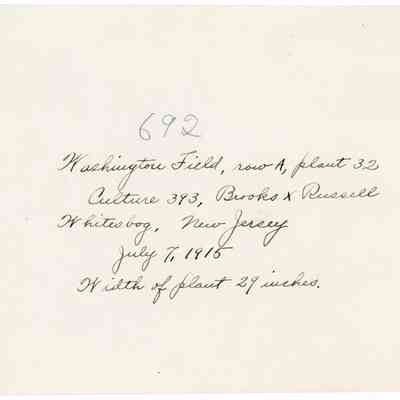 692
Washington Field, row A, plant 32
Culture 393, Brooks x Russell
Whitesbog, New Jersey
July 7, 1915
Width of plant 29 inches.